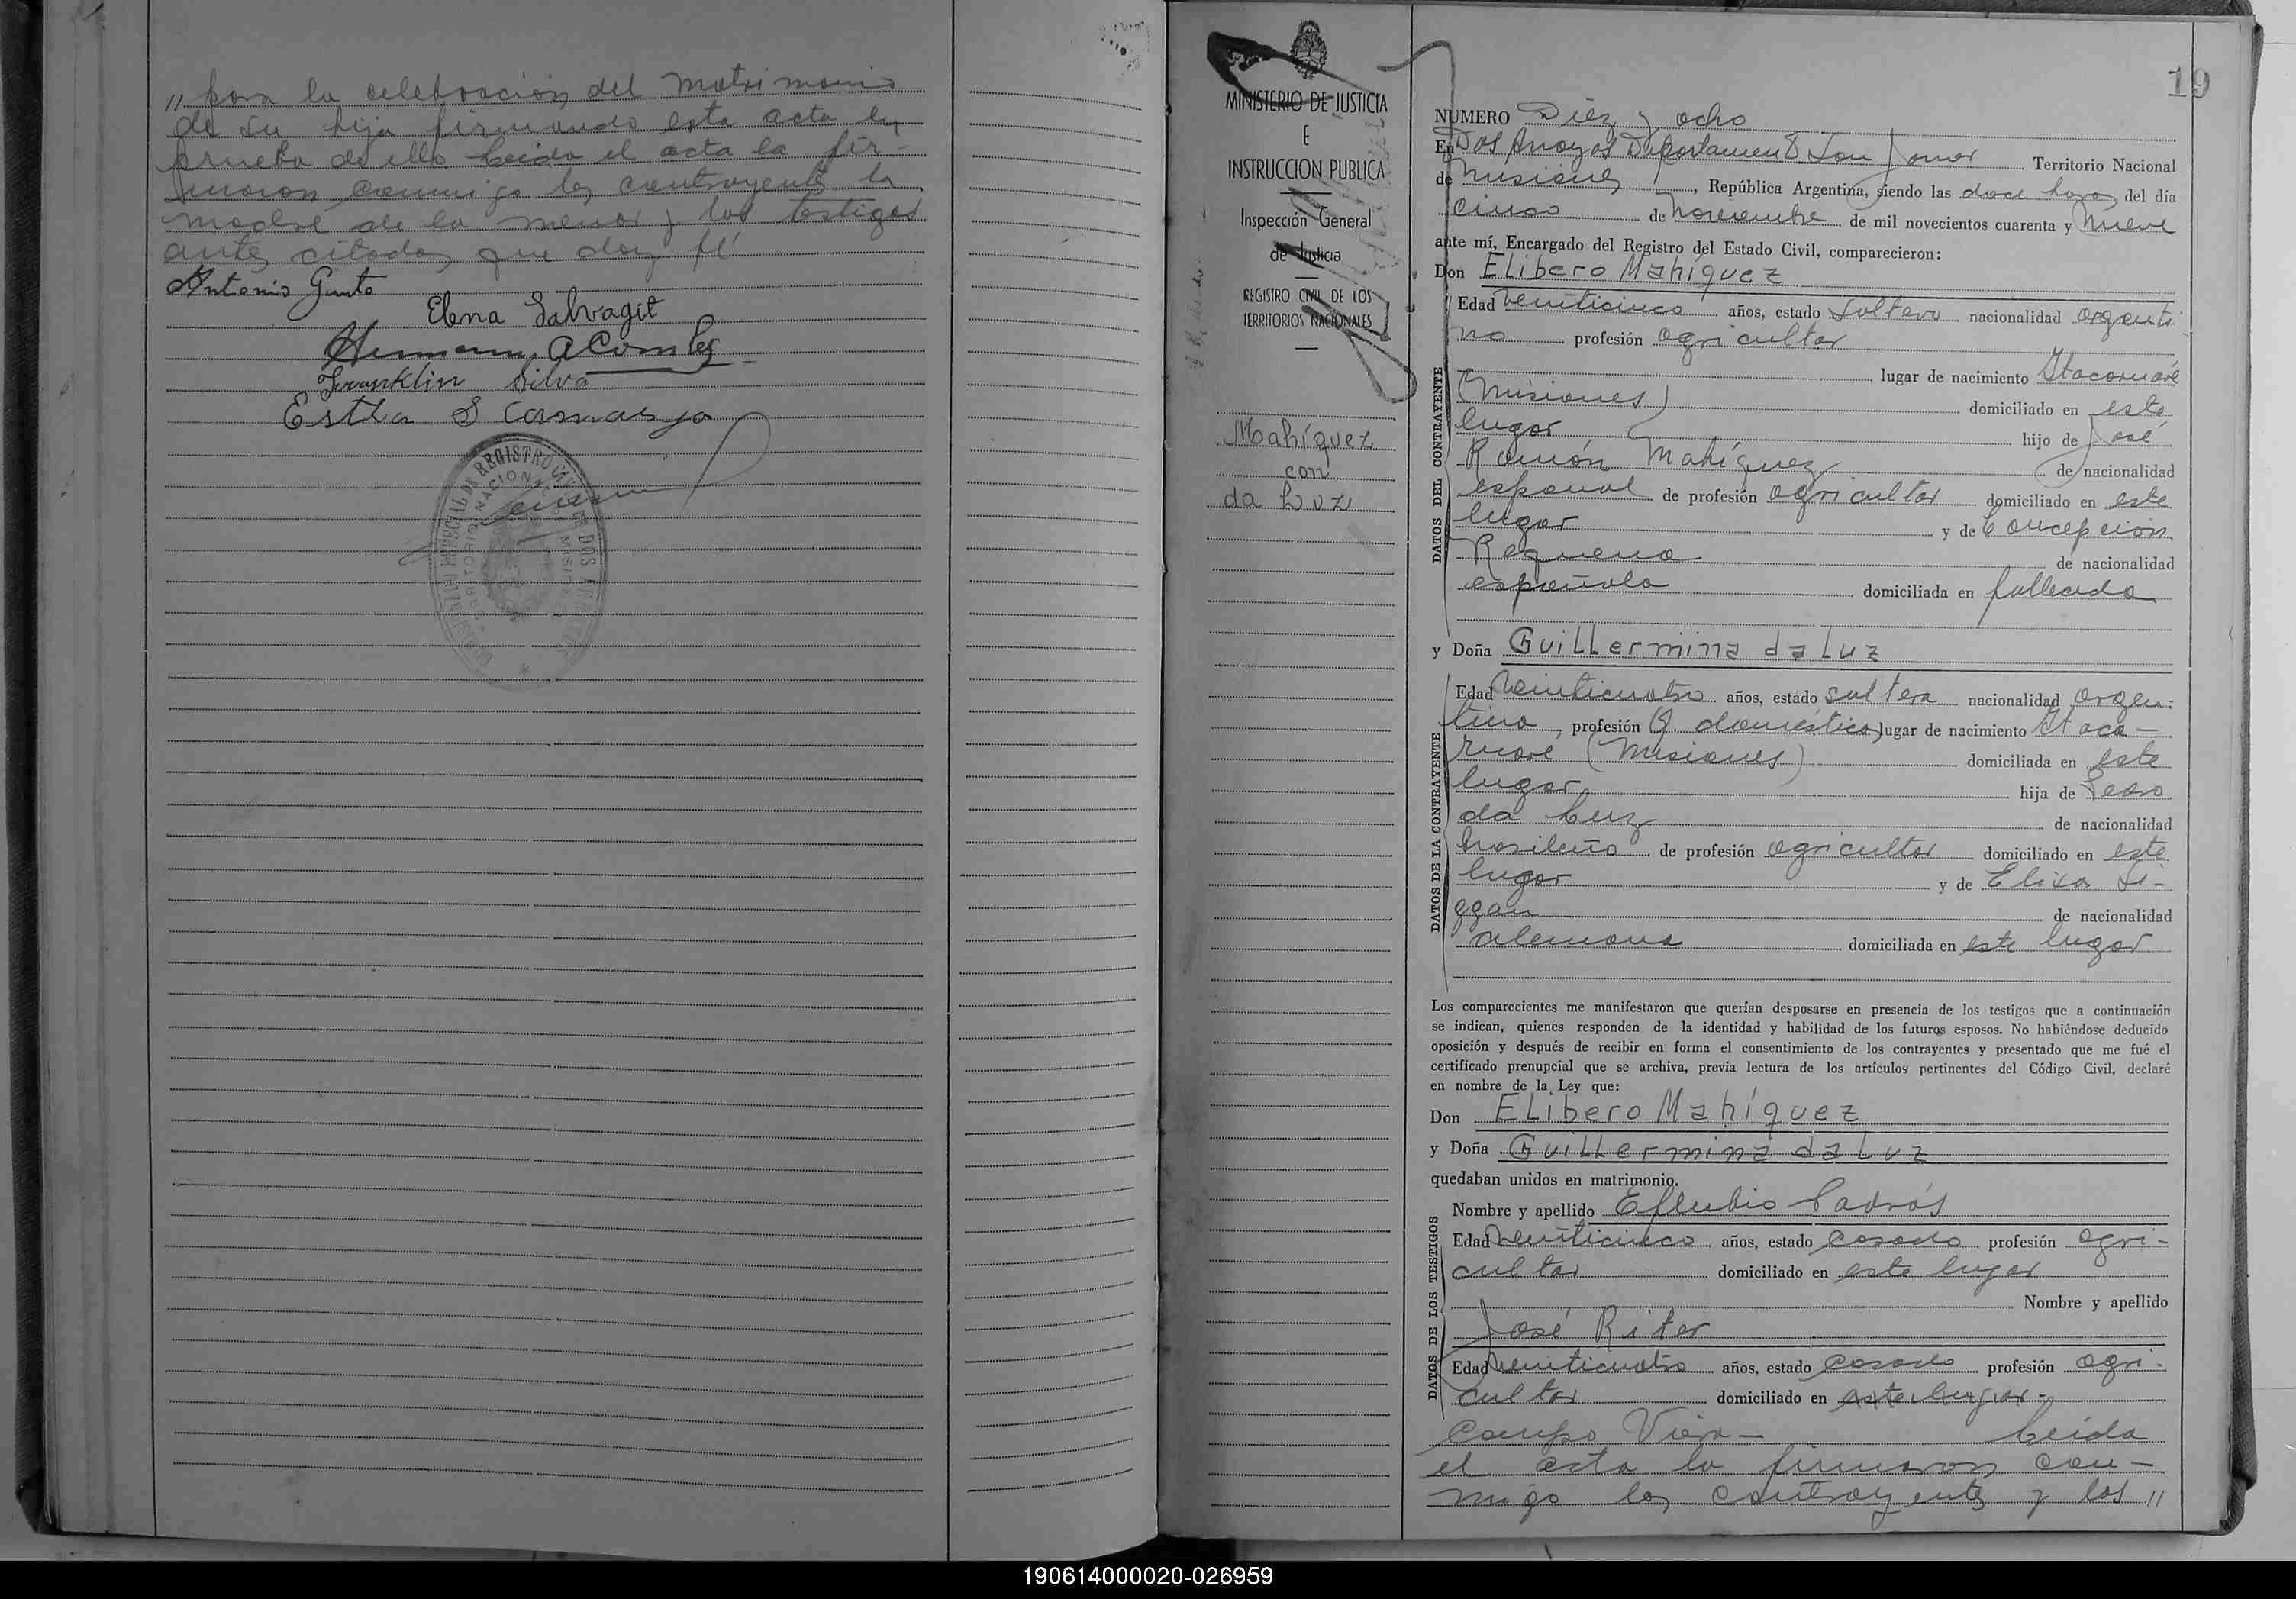 // para la celebración del matrimonio
de su hija firmando esta acta en
prueba de ello. Leida el acta la fir-
maron conmigo los contrayentes la
madre de la menor y los testigos
antes citados que doy fé
Antonio
Elena Salvagit
Franklin Silva
Esther S
REGISTRO
NACIONAL
MINISTERIO DE JUSTICIA
E
INSTRUCCION PUBLICA
Inspección General
de Justicia
REGISTRO CIVIL DE LOS
TERRITORIOS NACIONALES
Mahíquez
con
da Luz
19
NUMERO Diez y ocho
En Dos Arroyos Departamento Territorio Nacional
de Misiones, República Argentina, siendo las doce horas del día
cinco de noviembre de mil novecientos cuarenta y nueve
ante mí, Encargado del Registro del Estado Civil, comparecieron:
Don Elibero Mahíquez
DATOS DEL CONTRAYENTE
Edad veinticinco años, estado soltero nacionalidad argenti
no profesión agricultor
lugar de nacimiento Itacaruaré
(Misiones) domiciliado en este
lugar hijo de José
Ramón Mahíquez de nacionalidad
español de profesión agricultor domiciliado en este
lugar y de Concepción
Requena de nacionalidad
española domiciliada en fallecida
y Doña Guillermina da Luz
DATOS DE LA CONTRAYENTE
Edad veinticuatro años, estado soltera nacionalidad argen-
tina, profesión Q. domésticos lugar de nacimiento Itaca-
ruaré (Misiones) domiciliada en este
lugar hija de Pedro
da Luz de nacionalidad
brasileño de profesión agricultor domiciliado en este
lugar y de Elisa
de nacionalidad
alemana domiciliada en este lugar
Los comparecientes me manifestaron que querían desposarse en presencia de los testigos que a continuación
se indican, quienes responden de la identidad y habilidad de los futuros esposos. No habiéndose deducido
oposición y después de recibir en forma el consentimiento de los contrayentes y presentado que me fué el
certificado prenupcial que se archiva, previa lectura de los artículos pertinentes del Código Civil, declaré
en nombre de la Ley que:
Don Elibero Mahíquez
y Doña Guillermina da Luz
quedaban unidos en matrimonio.
DATOS DE LOS TESTIGOS
Nombre y apellido
Edad veinticinco años, estado casado profesión agri-
cultor domiciliado en este lugar
Nombre y apellido
José Riter
Edad veinticuatro años, estado casado profesión agri-
cultor domiciliado en este lugar -
Campo Viera - Leida
el acta la firmaron con-
migo los contrayentes y los //
190614000020-026959